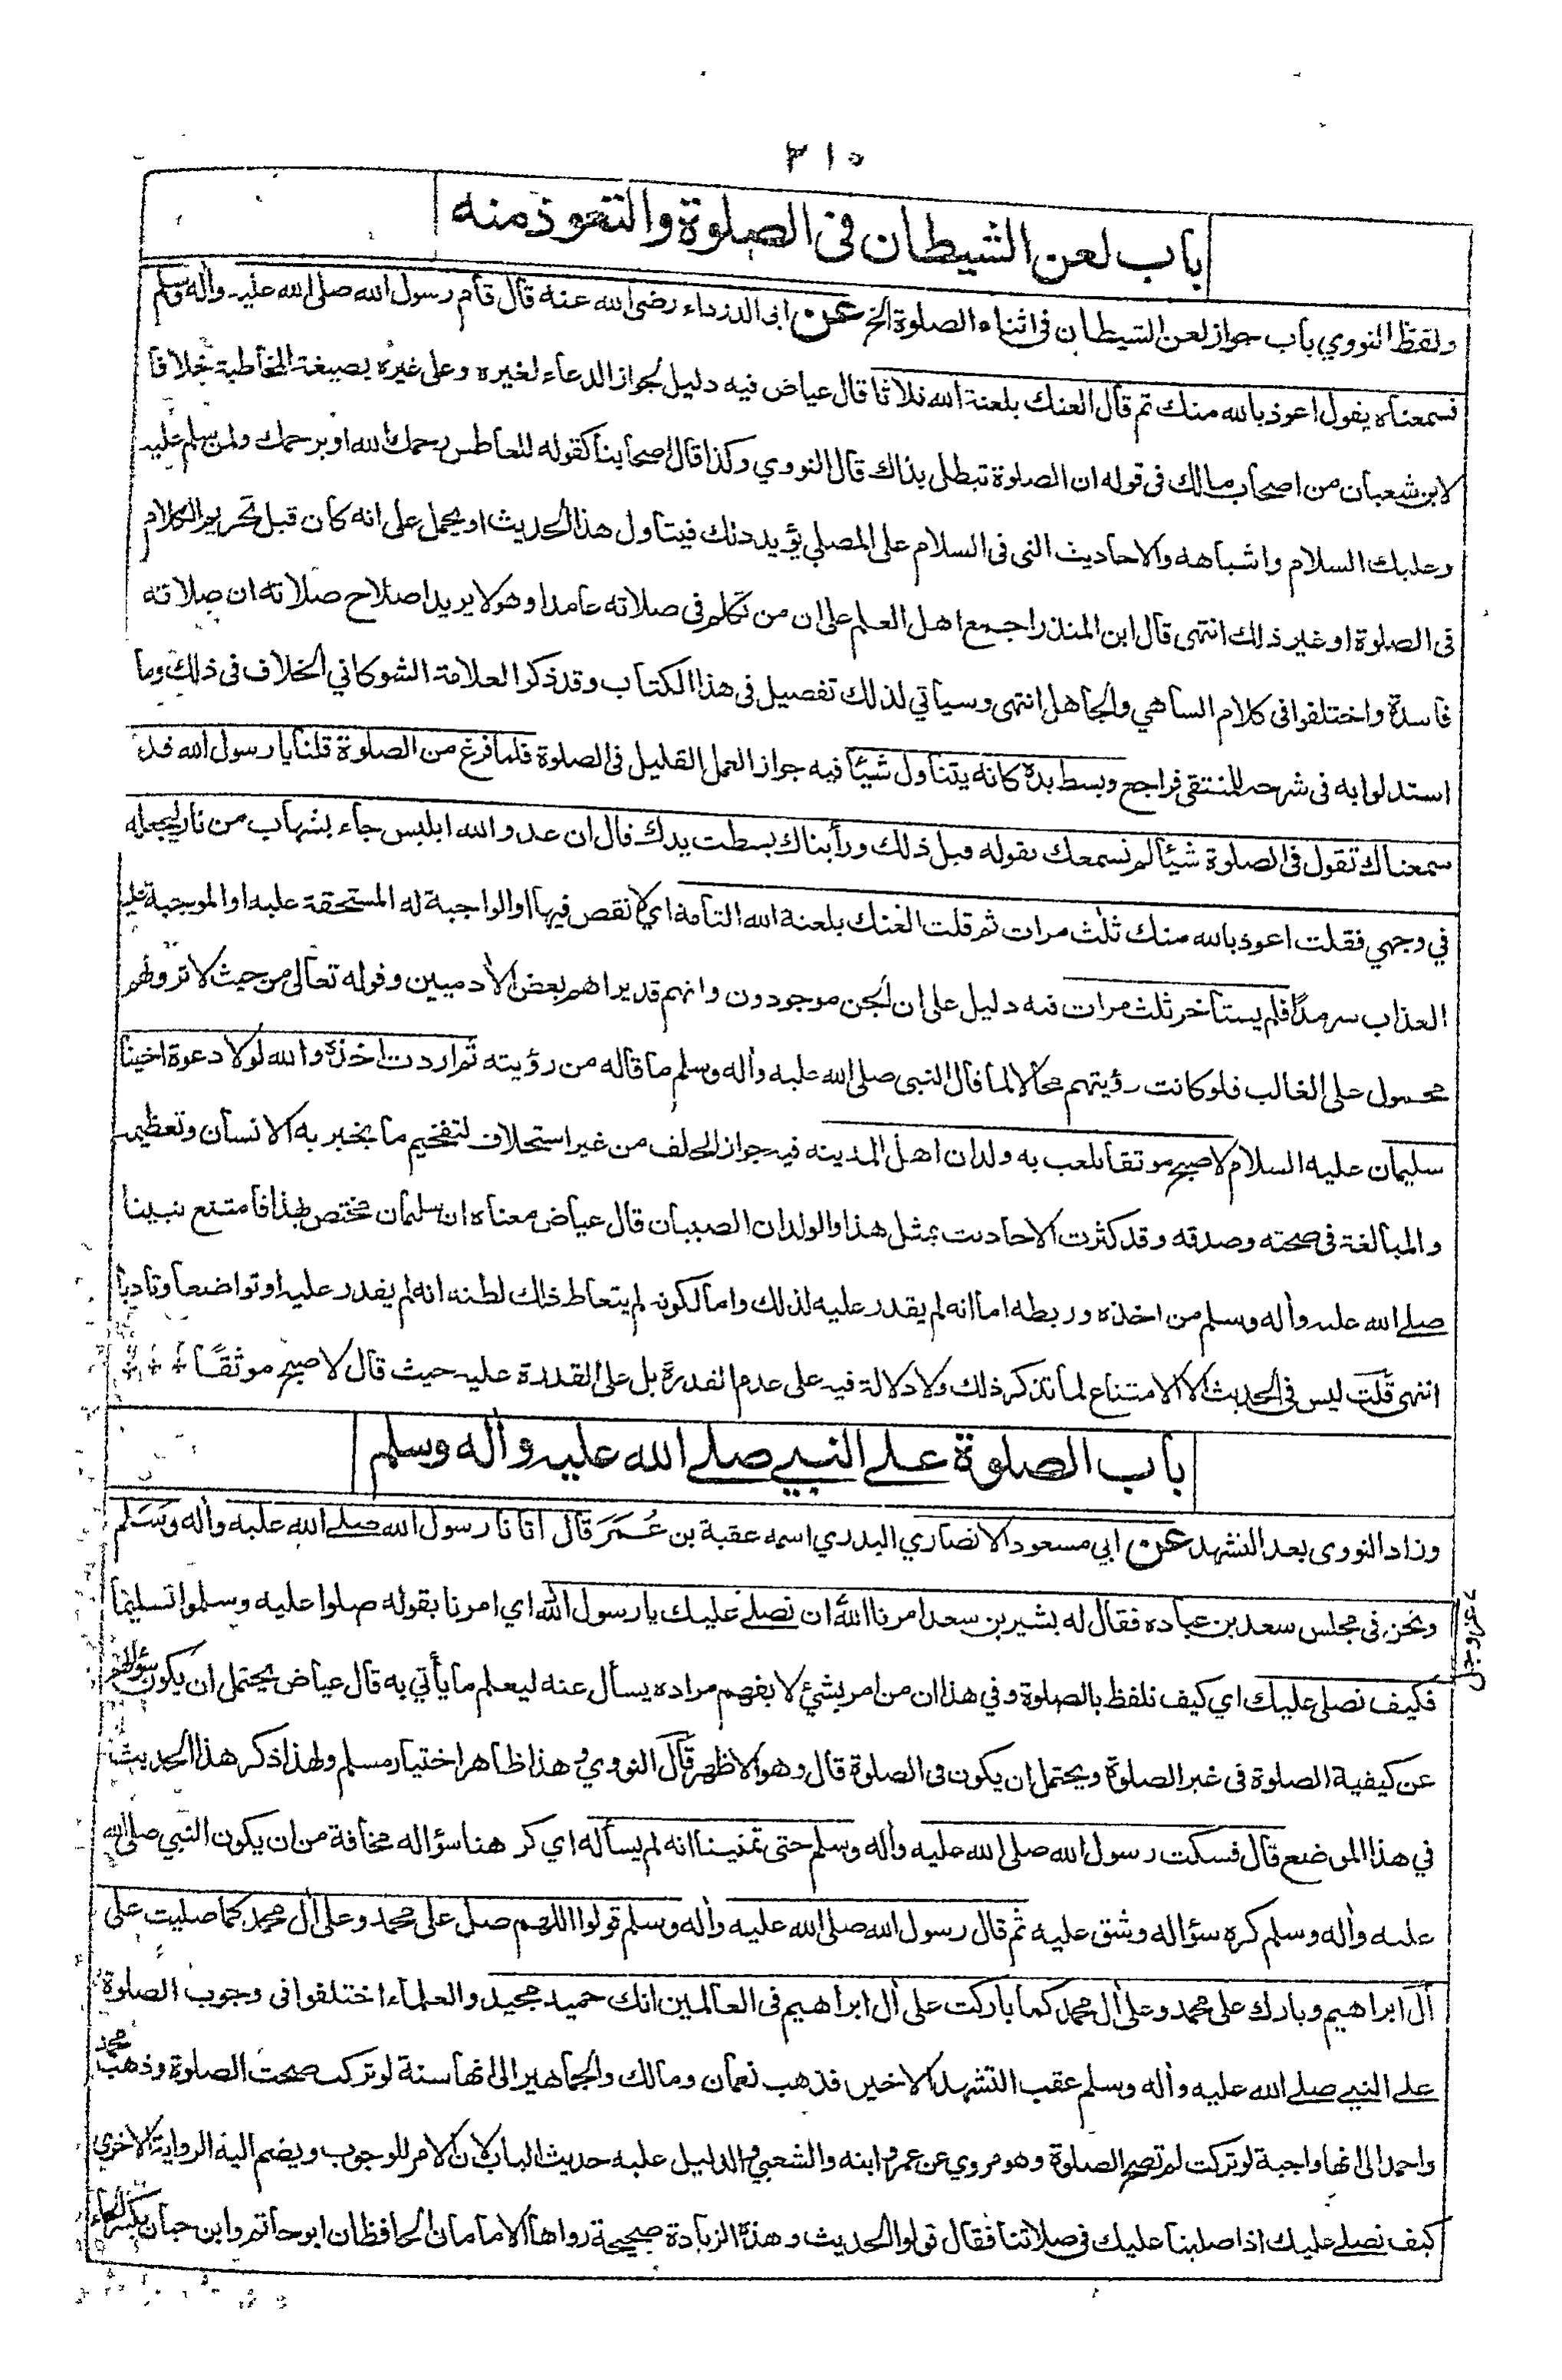 ٣١٥
باب لعن الشيطان فى الصلوة والتعوذ منه
ولفظ النووي باب جواز لعن الشيطان فى اثناء الصلوة الخ عن ابى الدرداء رضى الله عنه قال قام رسول الله صلى الله عليه واله وسلم
فسمعناه يقول اعوذ بالله منك ثم قال العنك بلعنة الله ثلاثا قال عياض فيه دليل لجواز الدعاء لغيره وعلى غيره بصيغة المخاطبة خلافا
لابن شعبان من اصحاب مالك فى قوله ان الصلوة تبطل بذاك قال النووي وكذا قال اصحابنا كقوله للعاطس رحمك الله او يرحمك ولمن سلم عليه
وعليك السلام واشباهه والاحاديث التى فى السلام على المصلي يؤيد ذلك فيتأول هذا الحديث او يحمل على انه كان قبل تحريم الكلام
فى الصلوة او غير ذلك انتهى قال ابن المنذر اجمع اهل العلم على ان من تكلم فى صلاته عامدا وهو لا يريد اصلاح صلاته ان صلاته
فاسدة واختلفوا فى كلام الساهي والجاهل انتهى وسيأتي لذلك تفصيل فى هذا الكتاب وقد ذكر العلامة الشوكاني الخلاف فى ذلك وما
استدلوا به فى شرحه للمنتقى فراجع وبسط يده كانه يتناول شيئا فيه جواز العمل القليل فى الصلوة فلما فرغ من الصلوة قلنا يا رسول الله قد
سمعناك تقول فى الصلوة شيئا لم نسمعك تقوله قبل ذلك ورأيناك بسطت يدك قال ان عدو الله ابليس جاء بشهاب من نار ليجعله
في وجهي فقلت اعوذ بالله منك ثلث مرات ثم قلت العنك بلعنة الله التامة اي لا نقص فيها او الواجبة له المستحقة عليه او الموجبة عليه
العذاب سرمدا فلم يستأخر ثلث مرات فيه دليل على ان الجن موجودون وانهم قد يراهم بعض الأدميين وقوله تعالى من حيث لا ترونهم
محمول على الغالب فلو كانت رؤيتهم محالا لما قال النبى صلى الله عليه واله وسلم ما قاله من رؤيته ثم اردت اخذه والله لولا دعوة اخينا
سليمان عليه السلام لاصبح موثقا يلعب به ولدان اهل المدينه فيه جواز الحلف من غير استحلاف لتفخيم ما يخبر به الانسان وتعظيمه
والمبالغة فى صحته وصدقه وقد كثرت الاحاديث بمثل هذا والولدان الصبيان قال عياض معناه ان سليمان مختص بهذا فامتنع نبينا
صلے الله عليه واله وسلم من اخذه وربطه اما انه لم يقدر عليه لذلك واما لكونه لم يتعاط ذاك لظنه انه لم يقدر عليه او تواضعا وتأدبا
انتهى قلت ليس فى الحديث الا الامتناع لما تذكر ذلك ولا دلالة فيه على عدم القدرة بل على القدرة عليه حيث قال لاصبح موثقًا
باب الصلوة علے النبے صلے الله عليه واله وسلم
وزاد النووى بعد التشهد عن ابي مسعود الانصاري البدري اسمه عقبة بن عُمَرَ قال اتانا رسول الله صلے الله عليه واله وسلم
ونحن فى مجلس سعد بن عباده فقال له بشير بن سعد امرنا الله ان نصلے عليك يا رسول الله اي امرنا بقوله صلوا عليه وسلموا تسليما
عز وجل
فكيف نصلى عليك اي كيف نلفظ بالصلوة وفي هذا ان من امر بشئ لا يفهم مراده يسأل عنه ليعلم ما يأتي به قال عياض يحتمل ان يكون سؤالهم
عن كيفية الصلوة فى غير الصلوة ويحتمل ان يكون فى الصلوة قال وهو الاظهر قال النووي وهذا ظاهر اختيار مسلم ولهذا ذكر هذا الحديث
في هذا الموضع قال فسكت رسول الله صلى الله عليه واله وسلم حتى تمنينا انه لم يسأله اي كرهنا سؤاله مخافة من ان يكون النبي صلى الله
عليه واله وسلم كره سؤاله وشق عليه ثم قال رسول الله صلى الله عليه واله وسلم قولوا اللهم صل على محمد وعلى ال محمد كما صليت على
ال ابراهيم وبارك على محمد وعلى ال محمد كما باركت على ال ابراهيم فى العالمين انك حميد مجيد والعلماء اختلفوا فى وجوب الصلوة
علے النبے صلے الله عليه واله وسلم عقب التشهد الاخير فذهب نعمان ومالك والجماهير الى انها سنة لو تركت صحت الصلوة وذهب محمد
واحمد الى انها واجبة لو تركت لم تصح الصلوة وهو مروي عن عمر وابنه والشعبي والدليل عليه حديث الباب لان الامر للوجوب ويضم اليه الرواية الاخرى
كيف نصلے عليك اذا صلينا عليك فى صلاتنا فقال قولوا الحديث وهذه الزيادة صحيحة رواها الامامان الحافظان ابو حاتم وابن حبان بكسر الحاء